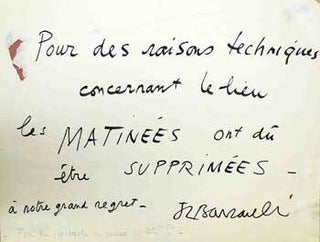 Pour des raisons techniques
concernant le lieu
les MATINÉES ont dû
être SUPPRIMÉES -
à notre grand regret - JLBarrault